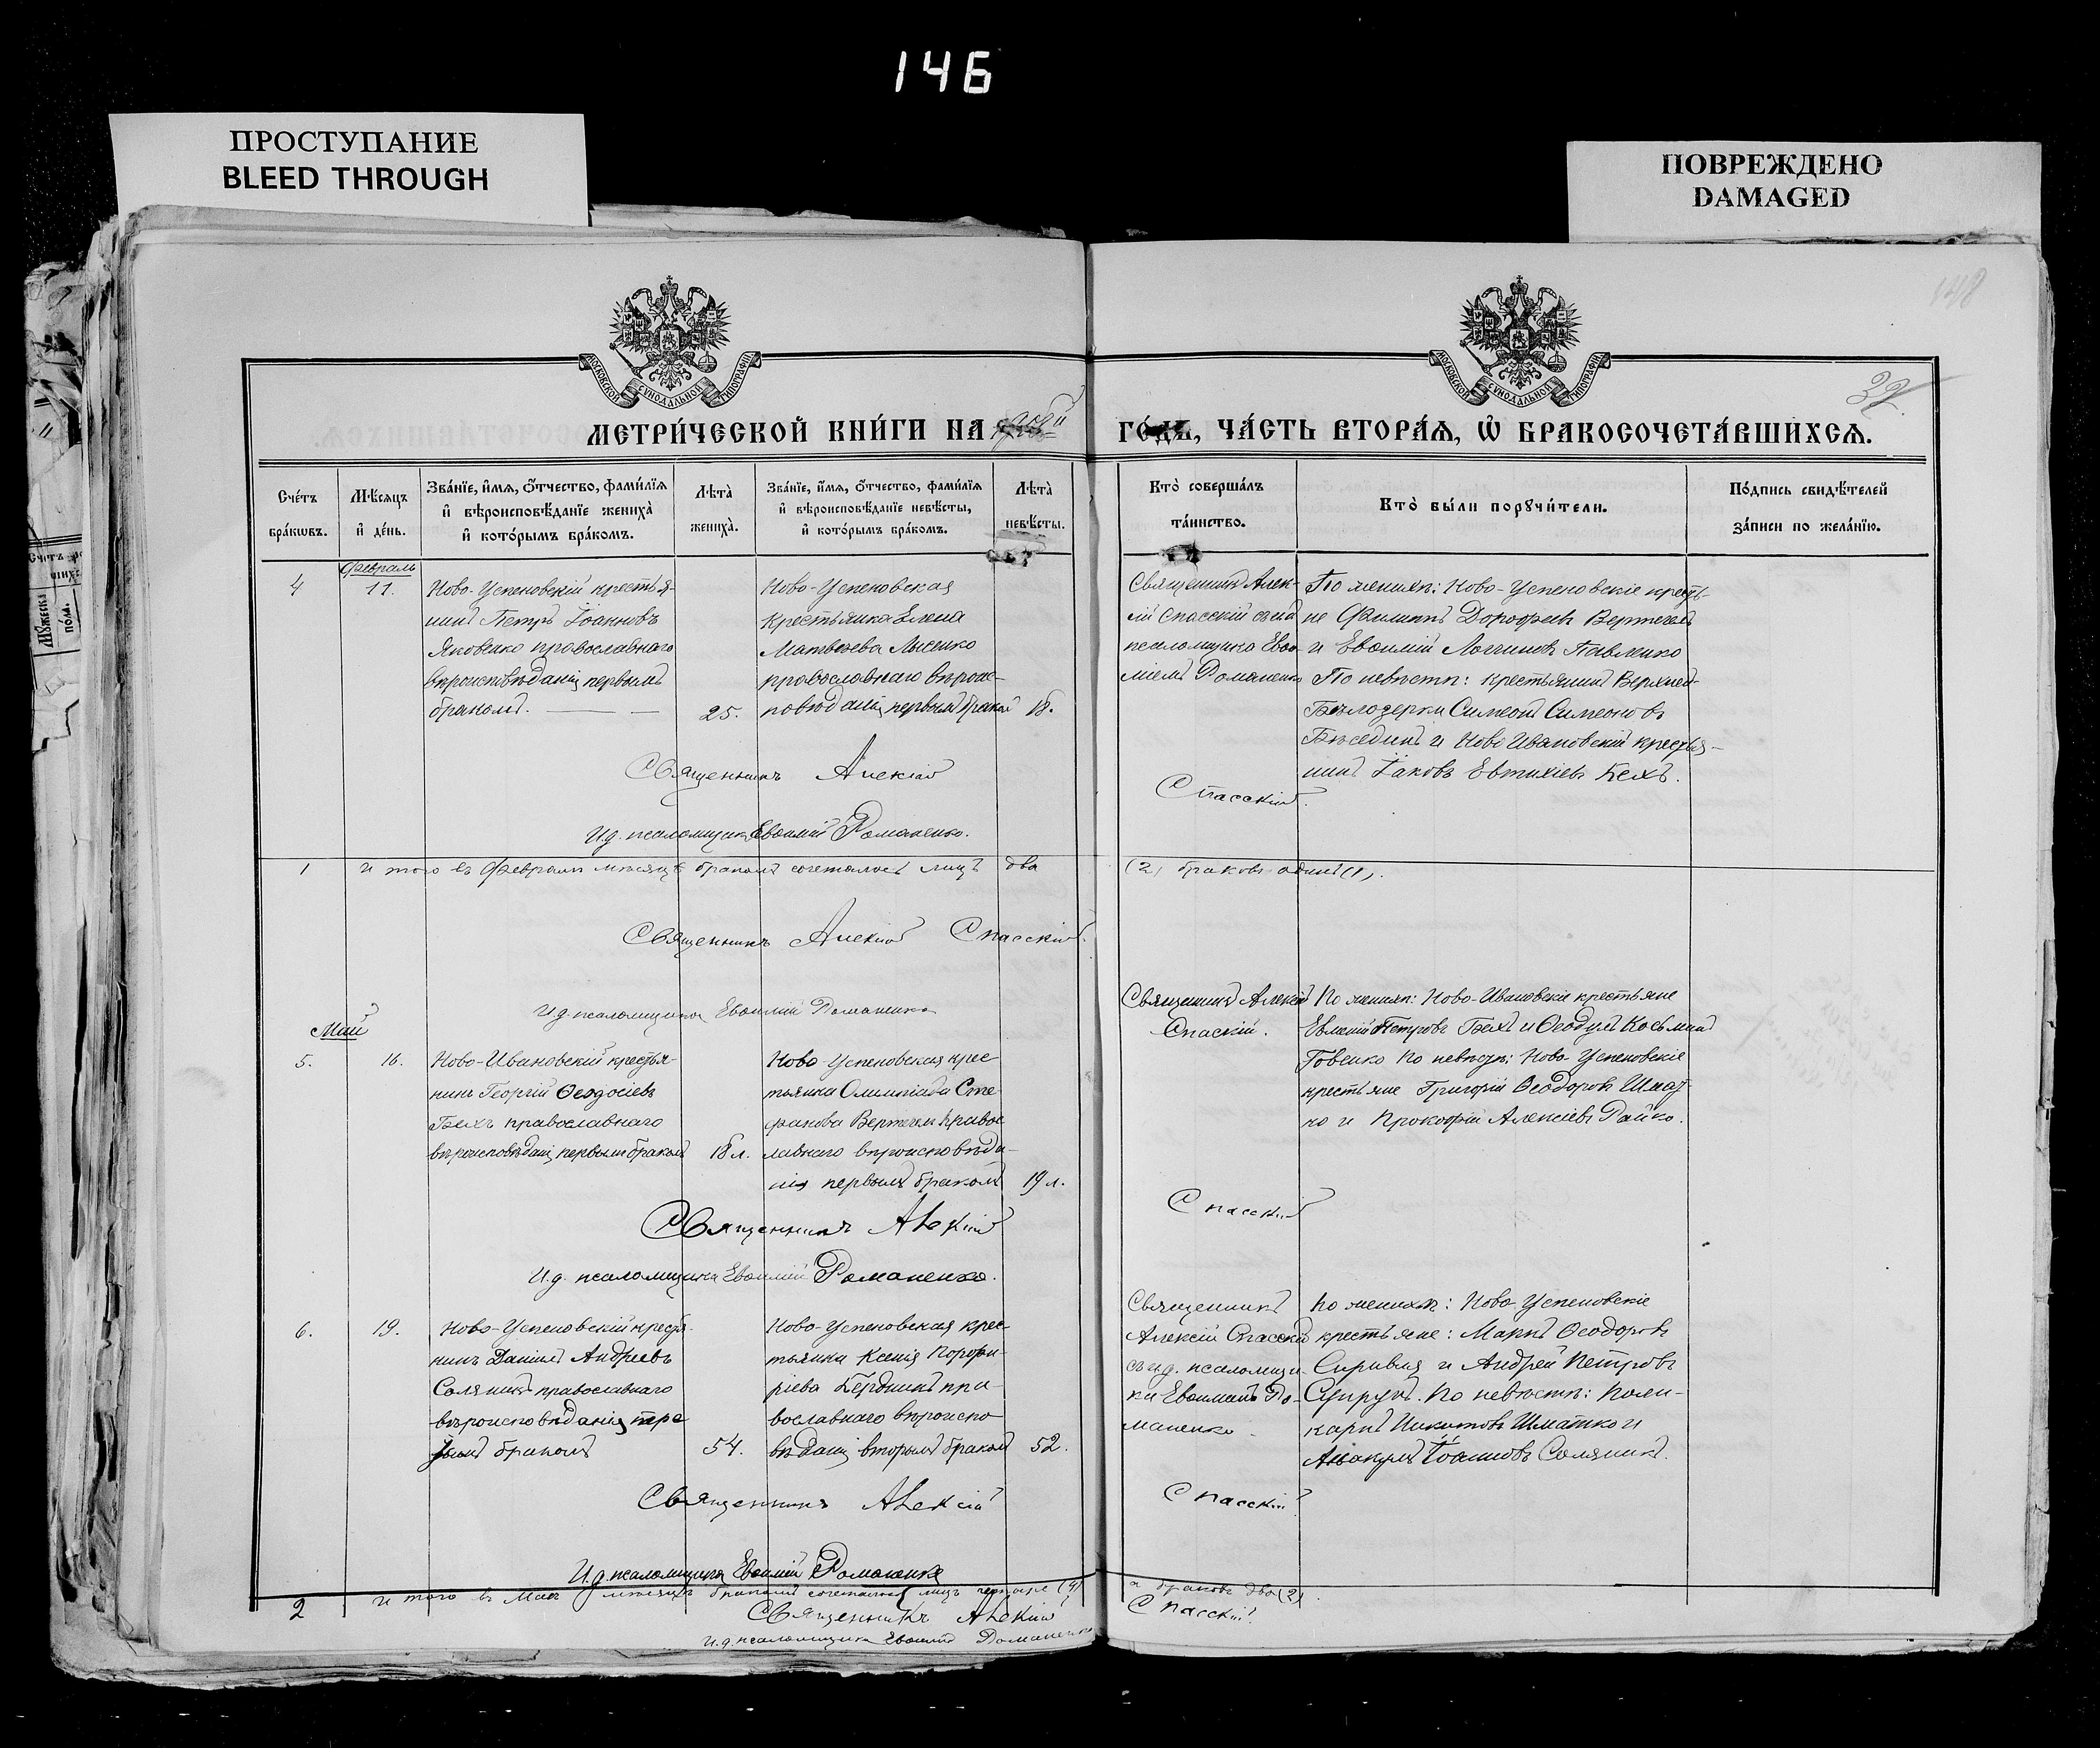 146
ПРОСТУПАНИЕ
BLEED THROUGH
ПОВРЕЖДЕНО
DAMAGED
148
32
МОСКОВСКОЙ СѴНОДАЛЬНОЙ ТИПОГРАФІИ
МОСКОВСКОЙ СѴНОДАЛЬНОЙ ТИПОГРАФІИ
МЕТРИ́ЧЕСКОЙ КНИ́ГИ НА
ГО́ДЪ, ЧА́СТЬ ВТОРА́Я, Ѡ БРАКОСОЧЕТА́ВШИХСЯ.
Сче́тъ бра́кωвъ.
Мѣ́сяцъ и҆ де́нь.
Зва́нїе, и҆́мя, ѻ҆́тчество, фами́лїя и҆ вѣроисповѣ́данїе жениха̀ и҆ кото́рымъ бра́комъ.
Лѣта̀ жениха̀.
Зва́нїе, и҆́мя, ѻ҆́тчество, фами́лїя и҆ вѣроисповѣ́данїе невѣ́сты, и҆ кото́рымъ бра́комъ.
Лѣта̀ невѣ́сты.
Кто̀ соверша́лъ та́инство.
Кто̀ бы́ли порꙋчи́тели.
По́дпись свидѣ́телей за́писи по жела́нїю.
Февраль
4
11.
Ново-Успеновскій крестья-
нинъ Петръ Іоанновъ
Яковенко православнаго
вѣроисповѣданія первымъ
бракомъ.
25.
Ново-Успеновская
крестьянка Елена
Матвѣева Лысенко
православнаго вѣроис-
повѣданія первымъ бракомъ
18.
Священникъ Алек-
сій Спасскій съ и.д.
псаломщика Евѳи-
міемъ Романенко
По женихѣ: Ново-Успеновскіе кресть-
не Филиппъ Дорофеевъ Вертегелъ
и Евѳимій Логгиновъ Павленко
По невѣстѣ: крестьянинъ Верхней-
Бѣлозерки Симеонъ Симеоновъ
Бѣсединъ и Ново Ивановскій крестья-
нинъ Іаковъ Евтихіевъ Кехъ.
Священникъ Алексій
Спасскій.
И.д. псаломщика Евѳимій Романенко.
1
Итого въ Февралѣ мѣсяцѣ бракомъ сочеталось лицъ два
(2) браковъ одинъ (1).
Священникъ Алексій Спасскій.
И.д. псаломщика Евѳимій Романенко
Май
5.
16.
Ново-Ивановскій крестья-
нинъ Георгій Ѳеодосіевъ
Бехъ православнаго
вѣроисповѣданія первымъ бракомъ
18 л.
Ново-Успеновская крес
тьянка Олимпіада Сте
фанова Вертегелъ правос
лавнаго вѣроисповѣда-
нія первымъ бракомъ
19 л.
Священникъ Алексій
Спаскій.
По женихѣ: Ново-Ивановскіе крестьяне
Евменій Петровъ Бехъ и Ѳеодулъ Косьминъ
Говенко По невѣстѣ: Ново-Успеновскіе
крестьяне Григорій Ѳеодоровъ Шмат-
ко и Прокофій Алексіевъ Райко.
Священникъ Алексій
Спасскій
И.д. псаломщика Евѳимій Романенко.
6.
19.
Ново-Успеновскій крестья-
нинъ Даніилъ Андреевъ
Соляникъ православнаго
вѣроисповѣданія тре
бракомъ
54.
Ново-Успеновская крес-
тьянка Ксенія Порфи-
ріева Бердникъ пра-
вославнаго вѣроиспо
вѣданія вторымъ бракомъ
52.
Священникъ
Алексій Спасскій
съ и.д. псаломщи-
ка Евѳиміемъ Ро-
маненко
По женихѣ: Ново-Успеновскіе
крестьяне: Маркъ Ѳеодоровъ
и Андрей Петровъ
Супрунъ. По невѣстѣ: Поли-
карпъ Никитовъ Шматко и
Аввакумъ Іоанновъ Соляникъ.
Священникъ Алексій
Спасскій
И.д. псаломщика Евѳимій Романенко
2
Итого въ Маѣ мѣсяцѣ бракомъ сочеталось лицъ четыре (4)
а браковъ два (2).
Священникъ Алексій
Спасскій.
И.д. псаломщика Евѳимій Романенко